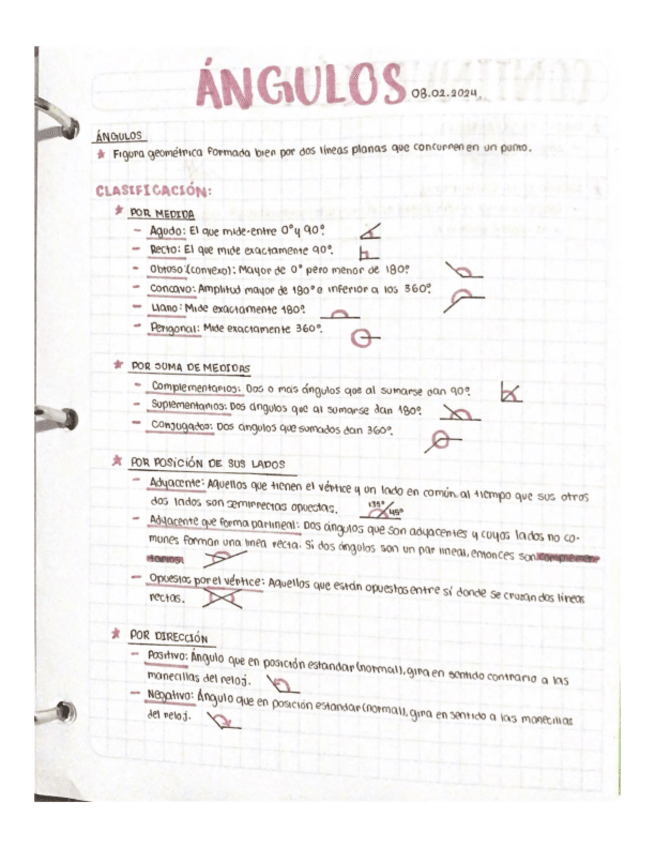 ÁNGULOS 08.02.2024
ÁNGULOS
Figura geométrica formada bien por dos líneas planas que concurren en un punto.
CLASIFICACIÓN:
POR MEDIDA
- Agudo: El que mide entre 0° y 90°.
- Recto: El que mide exactamente 90°.
- Obtuso (convexo): Mayor de 0° pero menor de 180°
- Concavo: Amplitud mayor de 180° e inferior a los 360°.
- Llano: Mide exactamente 180°.
- Perigonal: Mide exactamente 360°.
POR SUMA DE MEDIDAS
- Complementarios: Dos o mas ángulos que al sumarse dan 90°.
- Suplementarios: Dos ángulos que al sumarse dan 180°.
- Conjugados: Dos ángulos que sumados dan 360°.
POR POSICIÓN DE SUS LADOS
- Adyacente: Aquellos que tienen el vértice y un lado en común, al tiempo que sus otros
dos lados son semirrectas opuestas. 135° 45°
- Adyacente que forma par lineal: Dos ángulos que son adyacentes y cuyos lados no co-
munes forman una linea recta. Si dos ángulos son un par lineal, entonces son complemen-
tarios.
- Opuestos por el vértice: Aquellos que están opuestos entre sí donde se cruzan dos líneas
rectas.
POR DIRECCIÓN
- Positivo: Ángulo que en posición estandar (normal), gira en sentido contrario a las
manecillas del reloj.
- Negativo: Ángulo que en posición estandar (normal), gira en sentido a las manecillas
del reloj.